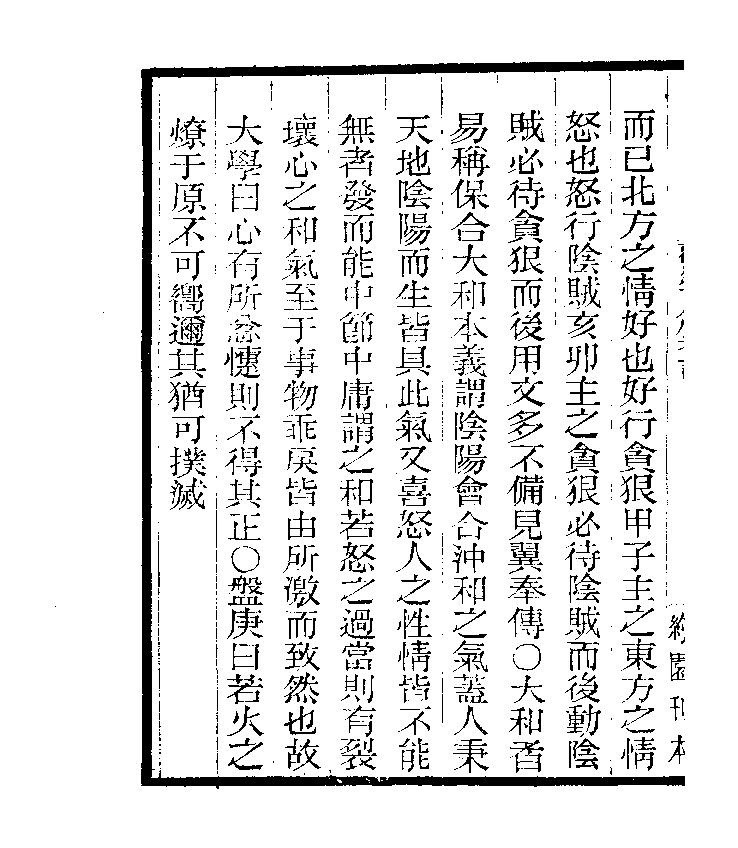 而已北方之情好也好行貪狠甲子主之東方之情
怒也怒行陰賊亥卯主之貪狠必待陰賊而後動陰
賊必待貪狠而後用文多不備見翼奉傳〇大和者
易稱保合大和本義謂陰陽會合沖和之氣蓋人秉
天地陰陽而生皆具此氣又喜怒人之性情皆不能
無者發而能中節中庸謂之和若怒之過當則有裂
壞心之和氣至于事物乖戾皆由所激而致然也故
大學曰心有所忿懥則不得其正〇盤庚曰若火之
燎于原不可嚮邇其猶可撲滅
園刊本